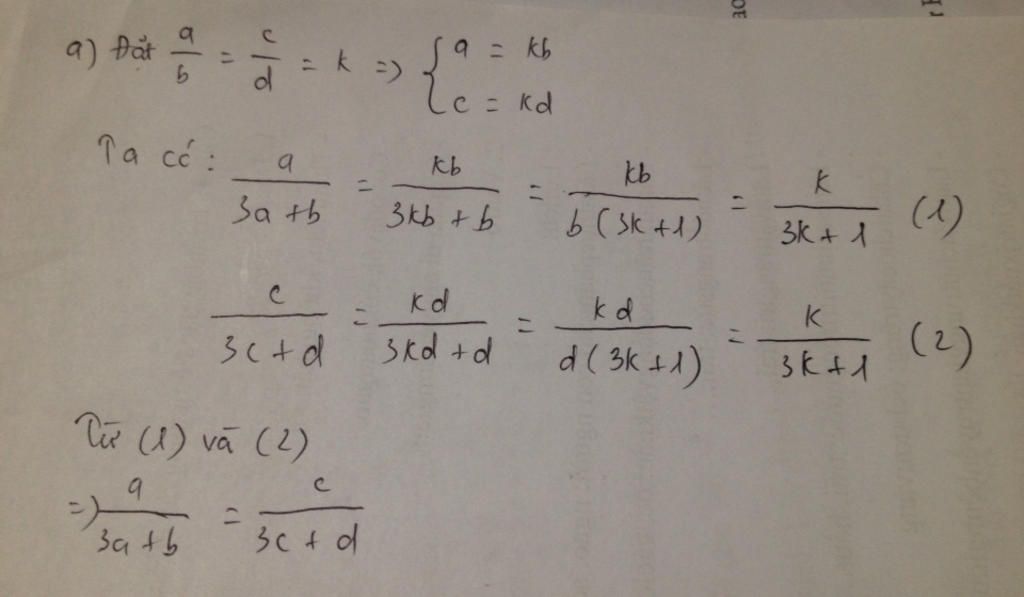 a) Đặt a/b = c/d = k => { a = kb
c = kd
Ta có: a/(3a+b) = kb/(3kb+b) = kb/(b(3k+1)) = k/(3k+1) (1)
c/(3c+d) = kd/(3kd+d) = kd/(d(3k+1)) = k/(3k+1) (2)
Từ (1) và (2)
=> a/(3a+b) = c/(3c+d)